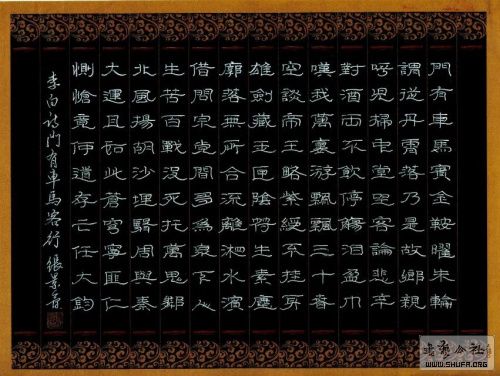 門有車馬賓金鞍曜朱輪
謂從丹霄落乃是故鄉親
呼兒掃中堂坐客論悲辛
對酒兩不飲停觴泪盈巾
嘆我萬里游飄飄三十春
空談帝王略紫綬不挂身
雄劍藏玉匣陰符生素塵
廓落無所合流離湘水濱
借問宗黨間多為泉下人
生苦百戰役死托萬鬼鄰
北風揚胡沙埋翳周與秦
大運且如此蒼穹寧匪仁
惻愴竟何道存亡任大鈞
李白詩門有車馬客行 張景
书法公社
WWW.SHUFA.ORG